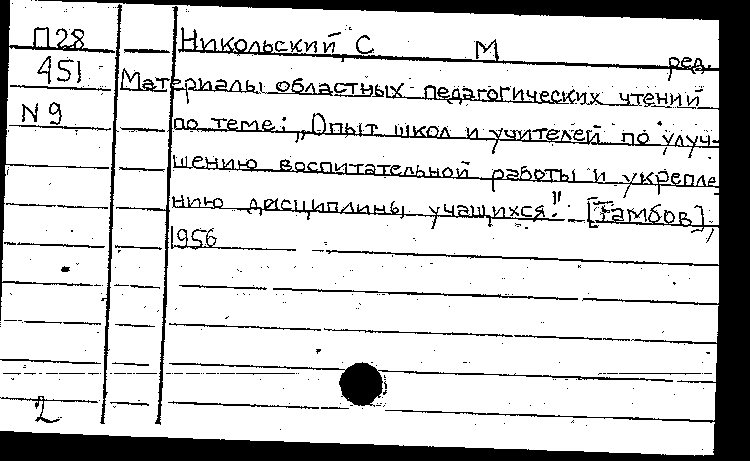 П28 Никольский, С М ред.
451 Материалы областных педагогических чтений
N 9 по теме: „Опыт школ и учителей по улуч-
шению воспитательной работы и укрепле
нию дисциплины учащихся." [Тамбов],
1956
2